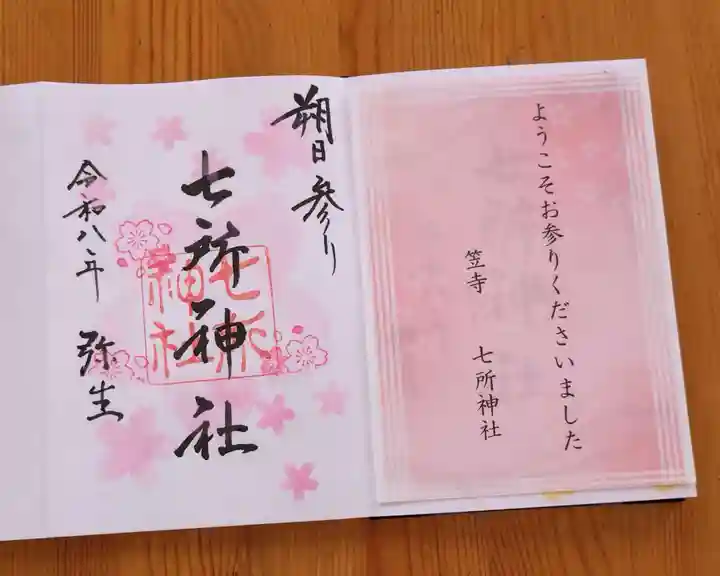 ようこそお参りくださいました
笠寺　七所神社
朔日参り
七所神社
七所神社
令和八年　弥生